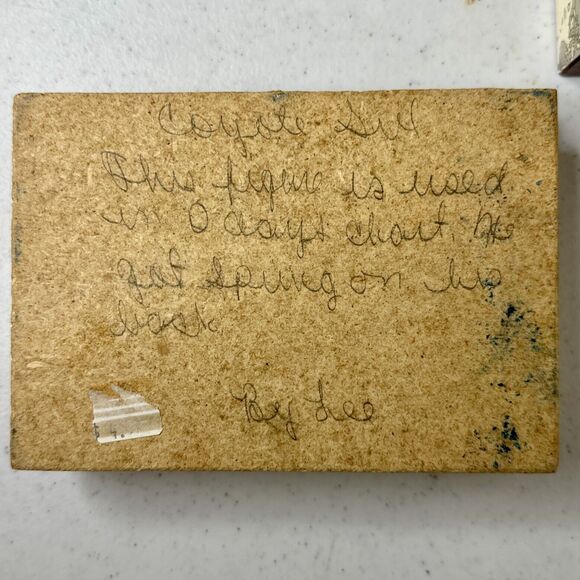 Coyote Girl
This figure is used
in 9 days chant. He
got spring on his
back
By Lee